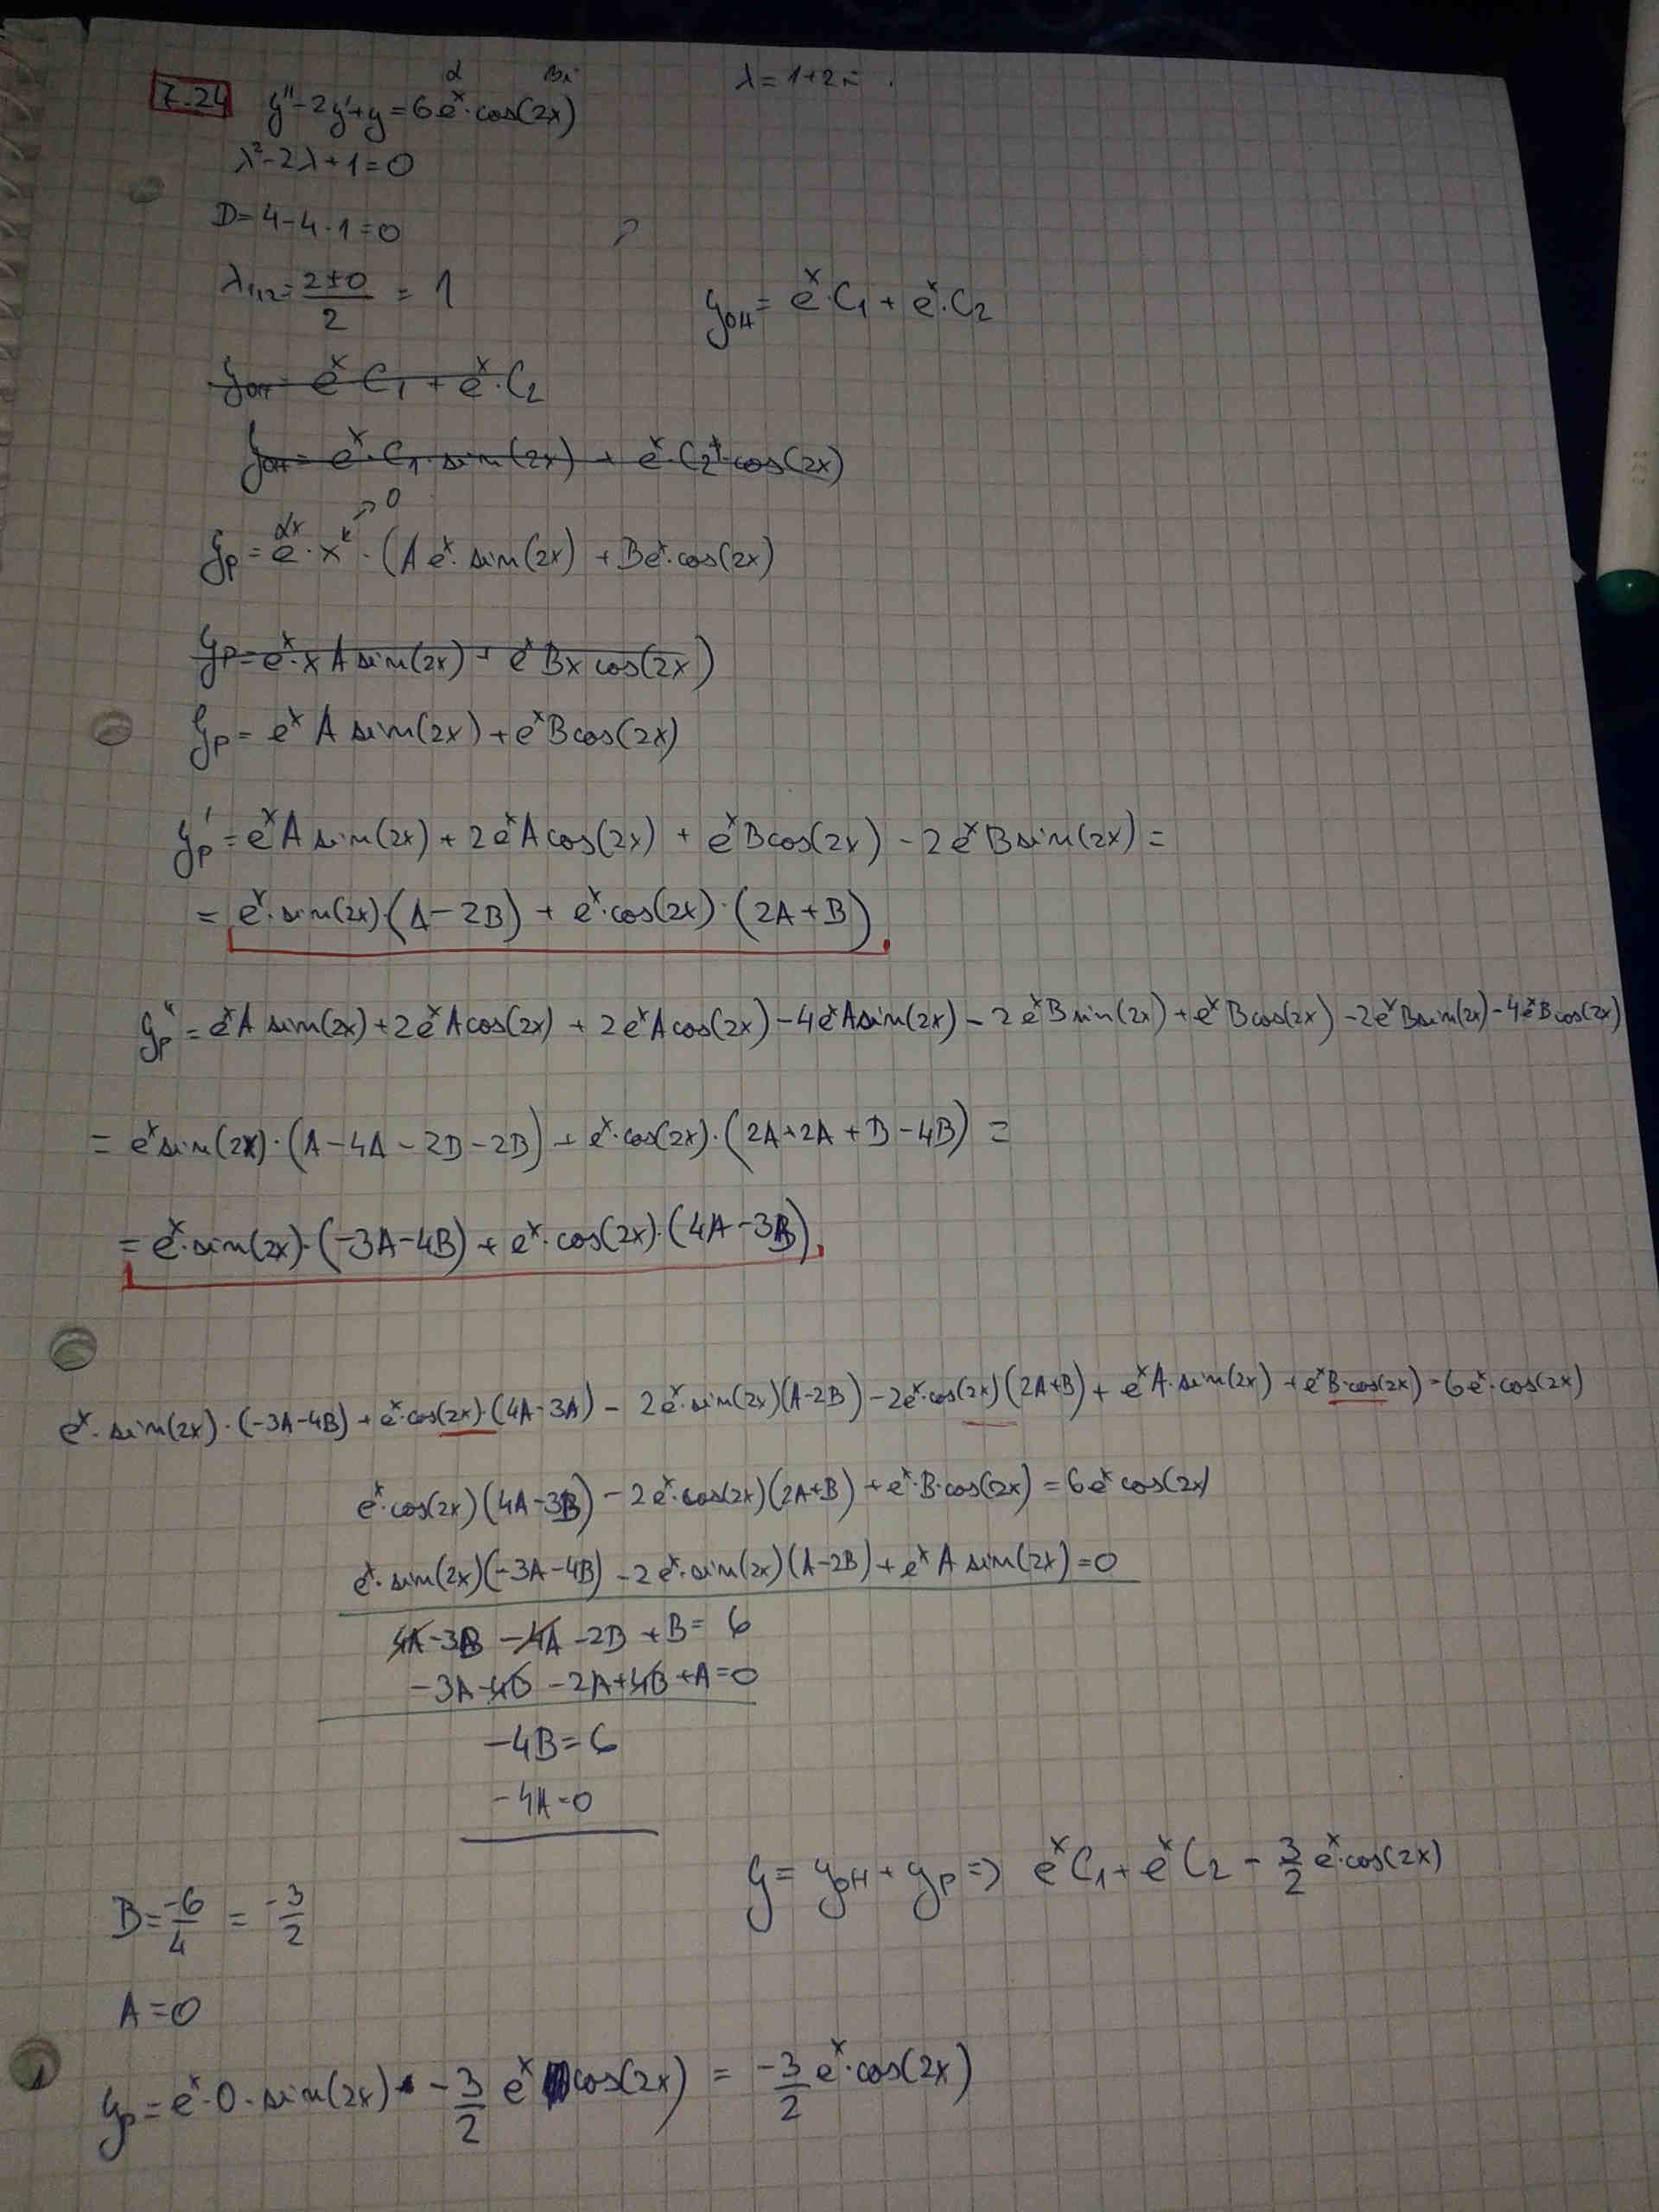 α βi λ = 1+2i
7.24 y'' - 2y' + y = 6e^x · cos(2x)
λ² - 2λ + 1 = 0
D = 4 - 4 · 1 = 0
λ₁,₂ = (2±0)/2 = 1
y_OH = e^x · C₁ + e^x · C₂
y_OH = e^x C₁ + e^x · C₂
y_OH = e^x · C₁ · sin(2x) + e^x · C₂ · cos(2x)
→ 0
y_p = e^αx · x^k · (A e^x · sin(2x) + B e^x · cos(2x)
y_p = e^x · x A sin(2x) + e^x B x cos(2x)
y_p = e^x A sin(2x) + e^x B cos(2x)
y_p' = e^x A sin(2x) + 2e^x A cos(2x) + e^x B cos(2x) - 2e^x B sin(2x) =
= e^x · sin(2x) · (A - 2B) + e^x · cos(2x) · (2A + B)
y_p'' = e^x A sin(2x) + 2e^x A cos(2x) + 2e^x A cos(2x) - 4e^x A sin(2x) - 2e^x B sin(2x) + e^x B cos(2x) - 2e^x B sin(2x) - 4e^x B cos(2x)
= e^x sin(2x) · (A - 4A - 2B - 2B) + e^x · cos(2x) · (2A + 2A + B - 4B) =
= e^x · sin(2x) · (-3A - 4B) + e^x · cos(2x) · (4A - 3B)
e^x · sin(2x) · (-3A - 4B) + e^x · cos(2x) · (4A - 3A) - 2e^x · sin(2x)(A - 2B) - 2e^x · cos(2x)(2A + B) + e^x A · sin(2x) + e^x B · cos(2x) = 6e^x · cos(2x)
e^x · cos(2x)(4A - 3B) - 2e^x · cos(2x)(2A + B) + e^x · B · cos(2x) = 6e^x cos(2x)
e^x · sin(2x)(-3A - 4B) - 2e^x · sin(2x)(A - 2B) + e^x A sin(2x) = 0
4A - 3B - 4A - 2B + B = 6
-3A - 4B - 2A + 4B + A = 0
-4B = 6
-4A = 0
y = y_OH + y_p => e^x C₁ + e^x C₂ - 3/2 e^x · cos(2x)
B = -6/4 = -3/2
A = 0
y_p = e^x · 0 · sin(2x) - 3/2 e^x cos(2x) = -3/2 e^x · cos(2x)